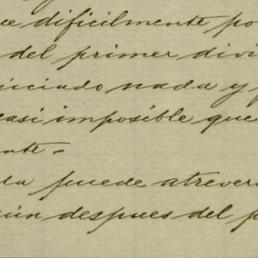 dificilmente po
del primer divi
iciado nada y
casi imposible que
nte.-
la puede atrever
ún despues del p